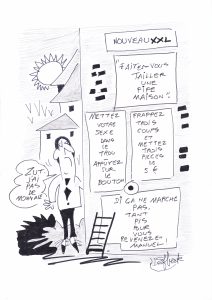 NOUVEAU XXL
FAITES-VOUS
TAILLER
UNE
PIPE
MAISON!!
METTEZ
VOTRE
SEXE
DANS
LE
TROU
APPUYEZ
SUR
LE
BOUTON
FRAPPEZ
TROIS
COUPS
ET
METTEZ
TROIS
PIECES
DE
5 €
SI ÇA NE MARCHE
PAS,
TANT
PIS
POUR
VOUS
REVENEZ-
MANUEL!
ZUT!
J'AI
PAS DE
MONNAIE